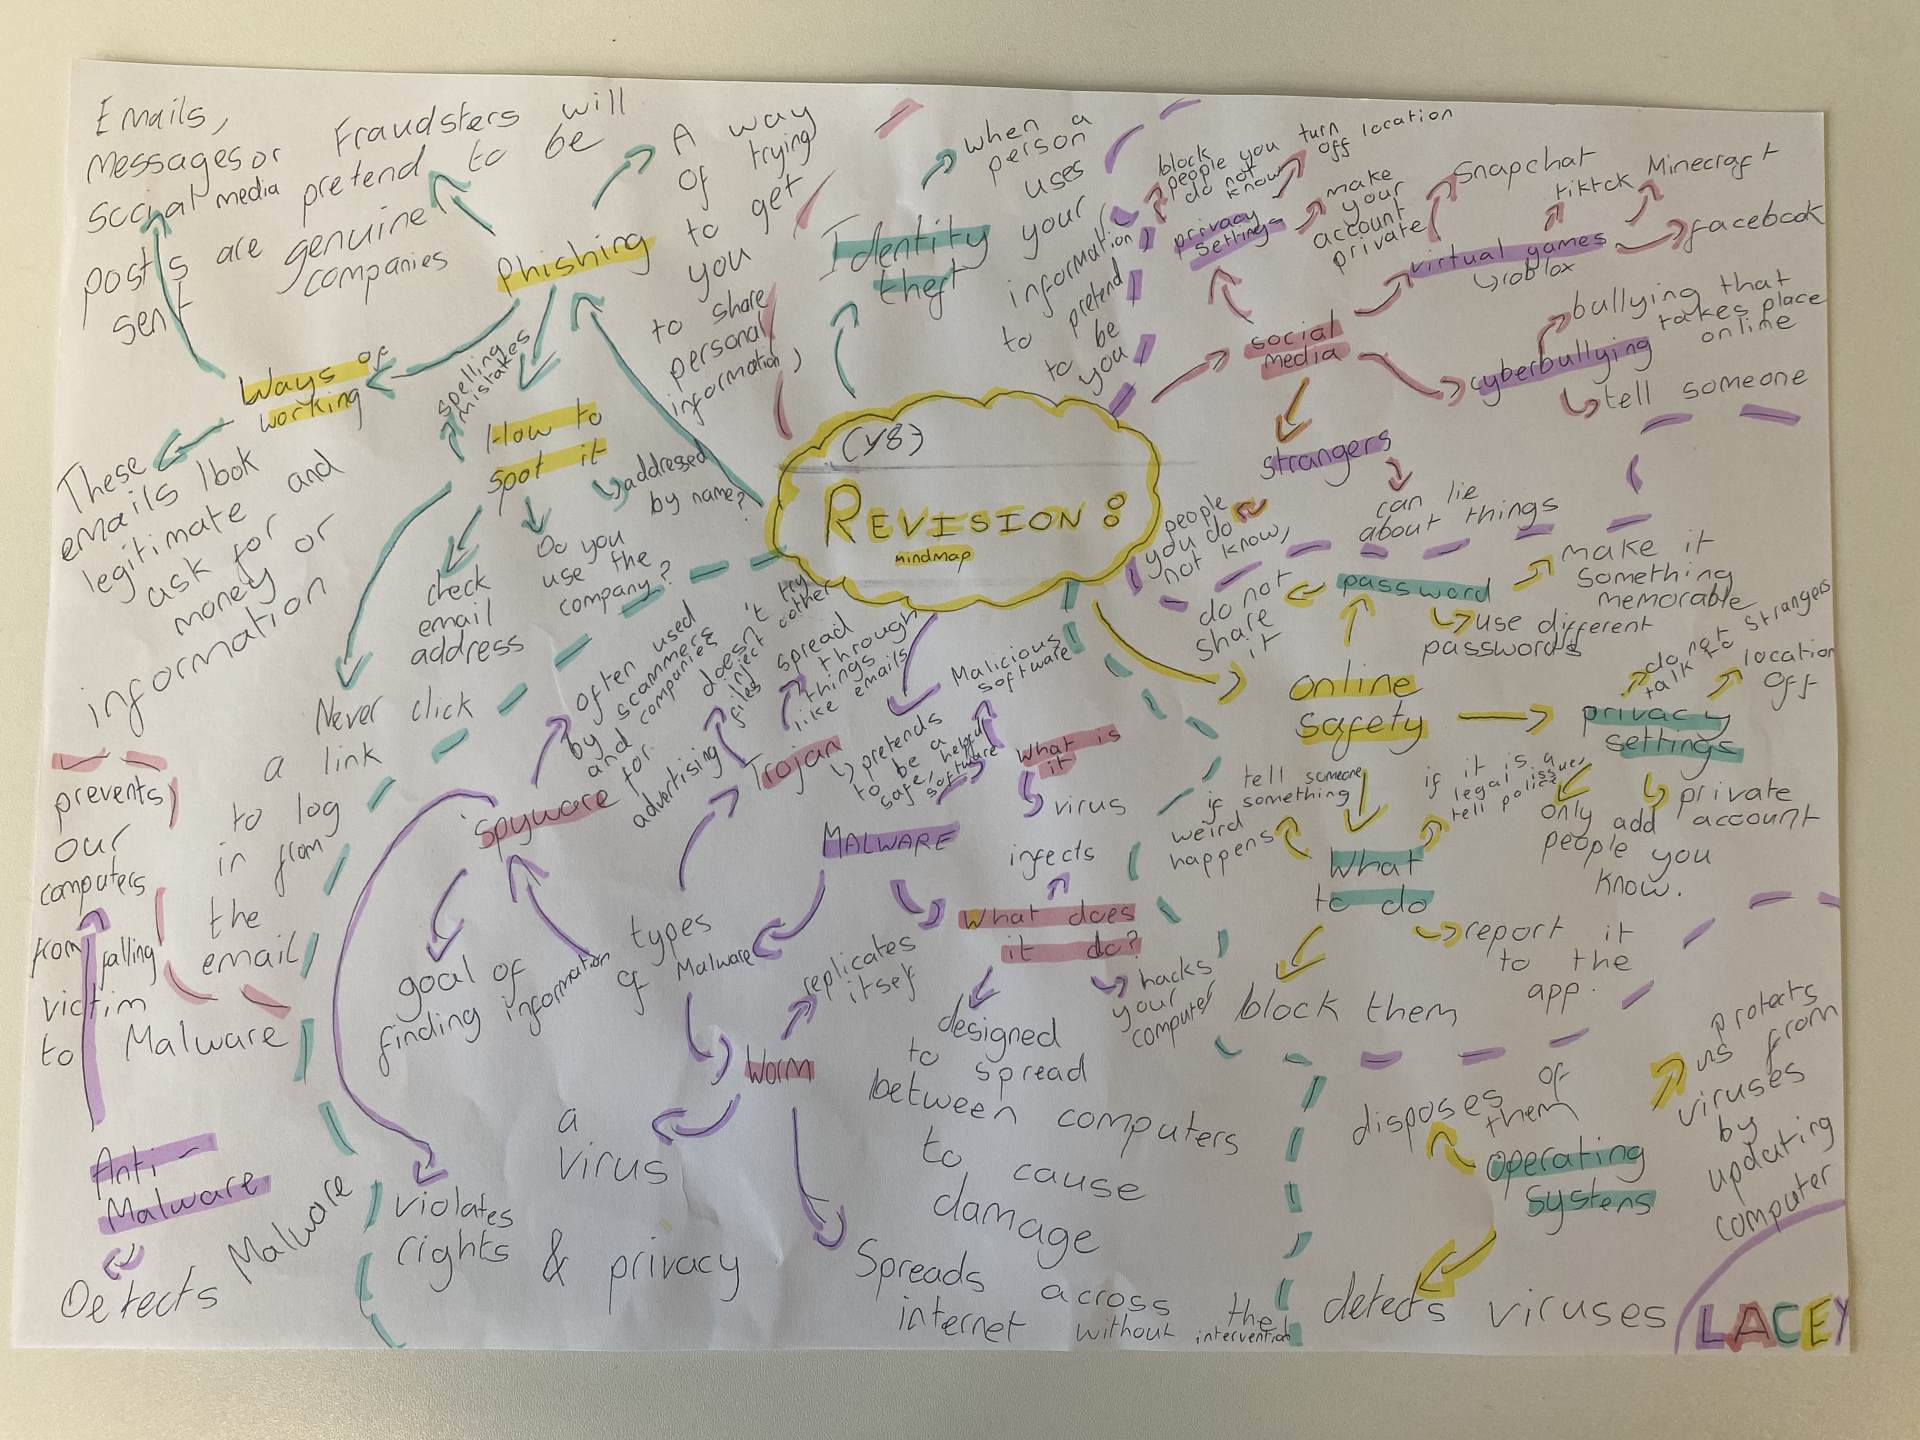 (Y8)
REVISION:
mindmap
Phishing
A way
of trying
to get
you
to share
personal
information,
Fraudsters will
pretend to be
genuine
companies
Ways of
working
Emails,
messages or
social media
posts are
sent
These
emails look
legitimate and
ask for
money or
information
How to
spot it
spelling
mistakes
addressed
by name?
Do you
use the
company?
check
email
address
Never click
a link
to log
in from
the
email
Identity
theft
when a
person
uses
your
information
to pretend
to be
you
social
media
privacy
settings
block
people you
do not
know
turn
off location
make
your
account
private
virtual games
↳roblox
Snapchat
tiktok
Minecraft
facebook
cyberbullying
bullying that
takes place
online
tell someone
strangers
can lie
about things
people
you do
not know,
online
safety
password
do not
share
it
make it
something
memorable
use different
passwords
privacy
settings
do not
talk to strangers
location
off
private
account
only add
people you
know.
What
to do
tell someone
if something
weird
happens
if it is a
legal issue,
tell police
report it
to the
app.
block them
MALWARE
What is
it
Malicious
software
virus
What does
it do?
infects
hacks
your
computer
designed
to spread
between computers
to cause
damage
types
of Malware
Trojan
pretends
to be a
safe, helpful
software
spread
through
things
like emails
doesn't try
inject other
files
Spyware
often used
by scammers
and companies
for
advertising
goal of
finding information
violates
rights & privacy
Worm
replicates
itself
a
virus
Spreads across the
internet without intervention
Anti-
Malware
prevents
our
computers
from falling
victim
to Malware
Detects Malware
operating
systems
disposes of
them
protects
us from
viruses
by
updating
computer
detects viruses
LACEY